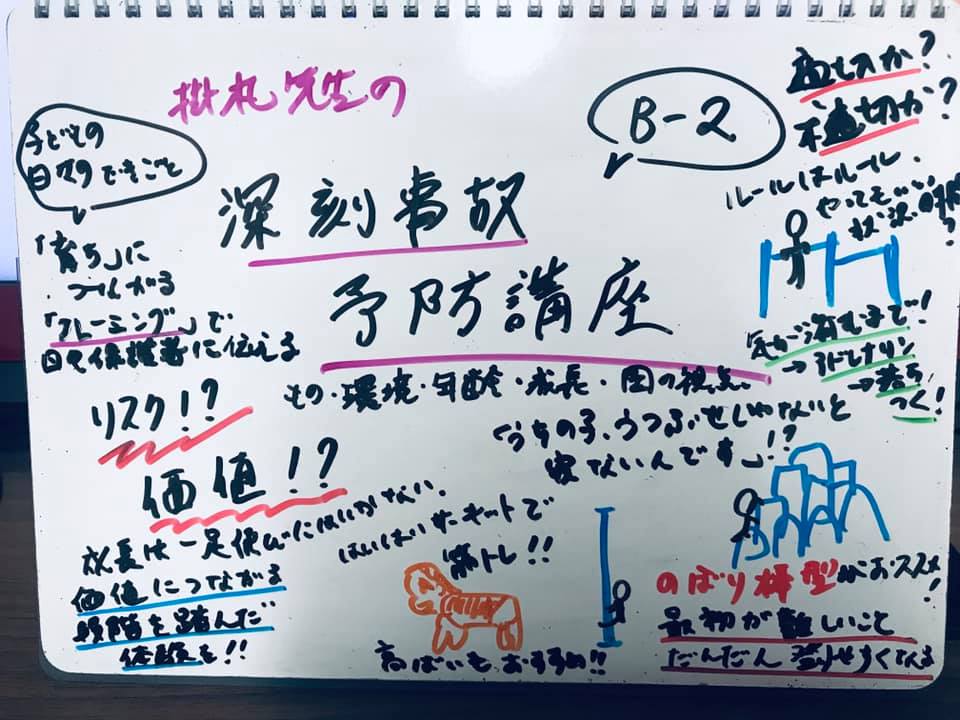 掛札先生の
B-2
深刻事故
予防講座
もの・環境・年齢・成長・園の視点。
子どもの
日々のできごと
「育ち」に
つながる
「フレーミング」で
日々保護者に伝える
リスク!?
価値!?
成長は一足飛びにはいかない。
価値につながる
段階を踏んだ
体験を!!
適切か?
不適切か?
ルールはルール、
やってもいい
状況・時間
?
気が済むまで!
→アドレナリン
→落ち
つく!
「うちの子、うつぶせじゃないと
寝ないんです」!?
はいはいサーキットで
筋トレ!!
高ばいもおすすめ!!
のぼり棒型がおススメ!
最初が難しいこと
だんだん登りやすくなる